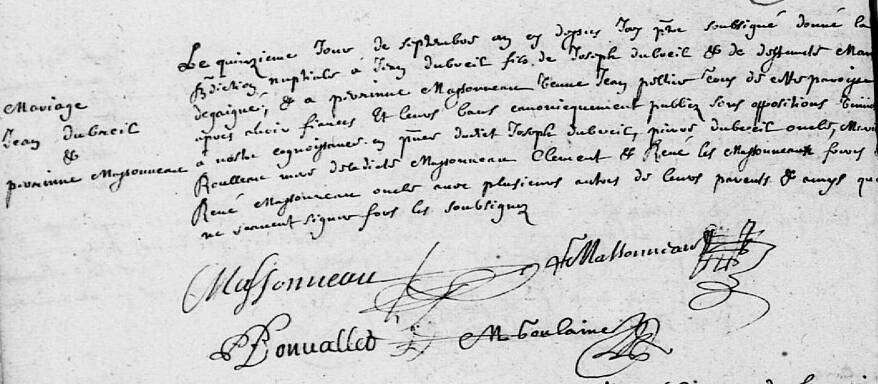 Mariage
Jean dubreil
&
perrinne Massonneau
Le quinzieme Jour de septembre an et depuis Jay pbre soubsigné donné la
bndiction nuptiale à Jean dubreil fils de Joseph dubreil & de deffuncte
& a perrinne Massonneau veuve Jean peltier tous de cette paroisse
apres avoir fiancés Et leurs bans canonicquement publiez sans oppositions
à nostre cognoissance en pnce dudict Joseph dubreil, pierre dubreil oncle,
Roulleau mere deladicte Massonneau Clement & René les Massonneaux freres
René Massonneau oncle avec plusieurs autres de leurs parents & amys
ne scavent signer fors les soubsignez
Massonneau
Massonneau
PBonvallet